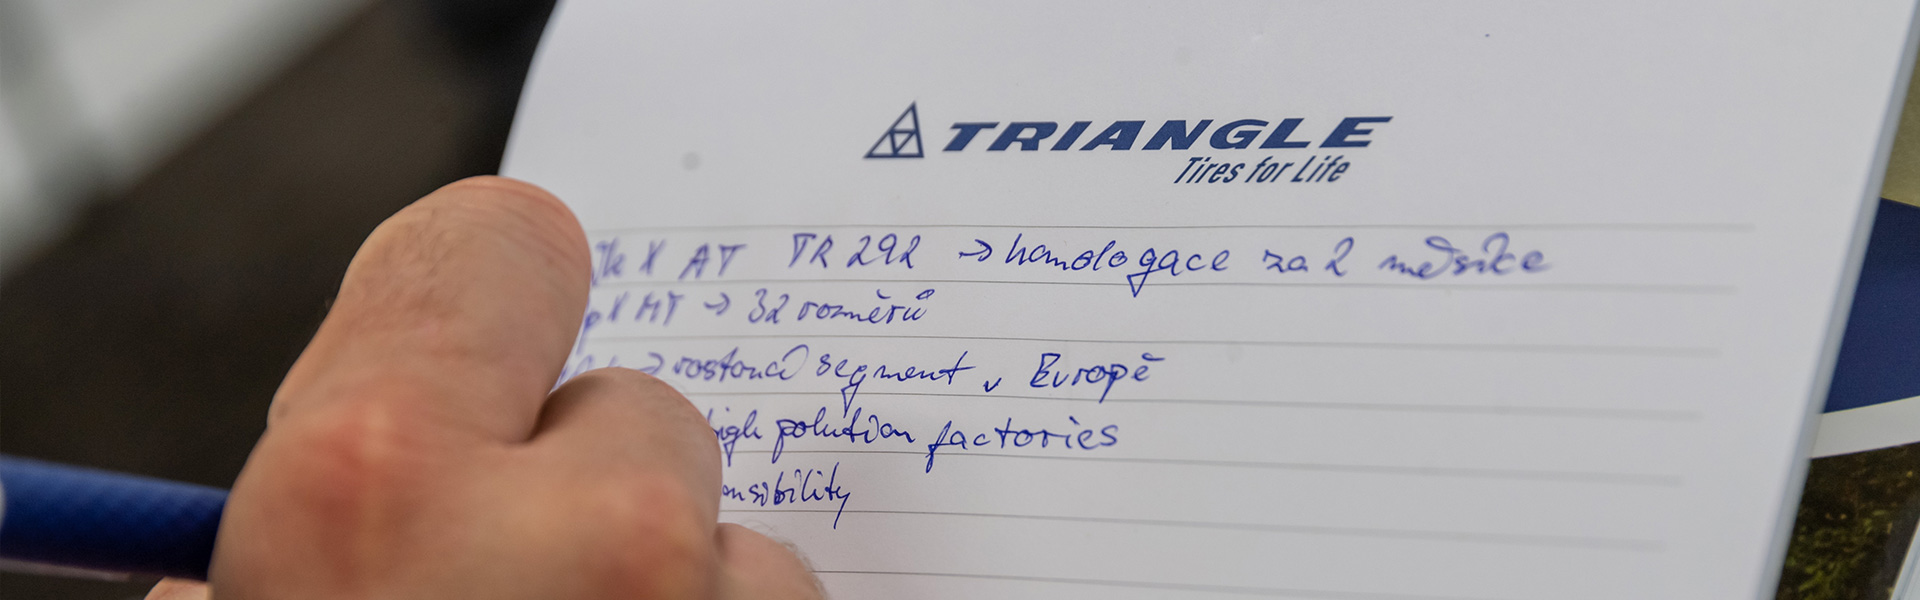 TRIANGLE
Tires for Life
X AT TR 292 → homologace za 2 měsíce
X MT → 32 rozměrů
→ rostoucí segment v Evropě
high polution factories